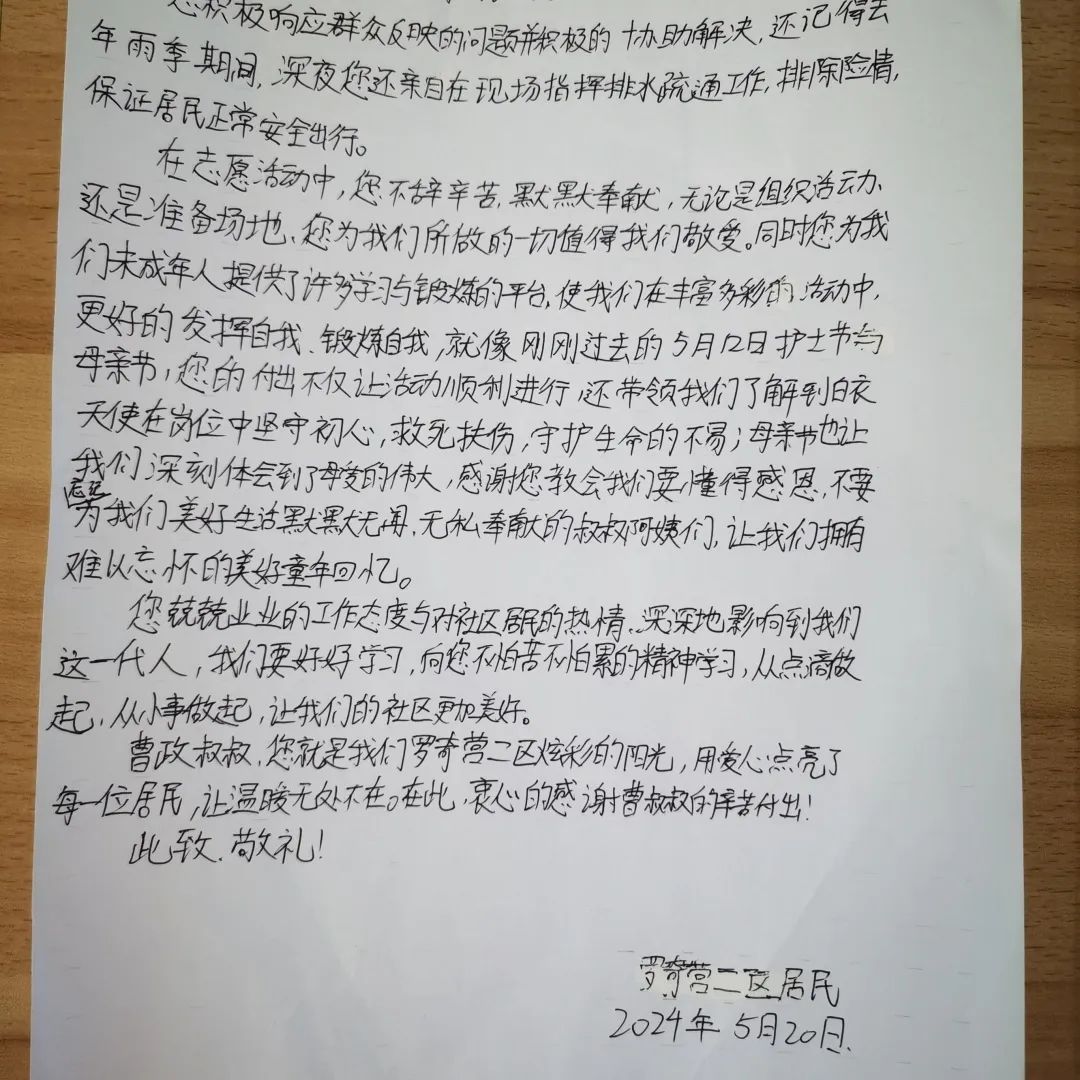 您积极响应群众反映的问题并积极的协助解决,还记得去
年雨季期间,深夜您还亲自在现场指挥排水疏通工作,排除险情,
保证居民正常安全出行。
在志愿活动中,您不辞辛苦,默默奉献,无论是组织活动、
还是准备场地、您为我们所做的一切值得我们敬爱。同时您为我
们未成年人提供了许多学习与锻炼的平台,使我们在丰富多彩的活动中,
更好的发挥自我、锻炼自我,就像刚刚过去的5月12日护士节与
母亲节,您的付出不仅让活动顺利进行,还带领我们了解到白衣
天使在岗位中坚守初心,救死扶伤,守护生命的不易;母亲节也让
我们深刻体会到了母爱的伟大,感谢您教会我们要懂得感恩,不要
为我们美好生活默默无闻、无私奉献的叔叔阿姨们,让我们拥有
难以忘怀的美好童年回忆。
您兢兢业业的工作态度与对社区居民的热情、深深地影响到我们
这一代人,我们要好好学习,向您不怕苦不怕累的精神学习,从点滴做
起,从小事做起,让我们的社区更加美好。
曹政叔叔,您就是我们罗奇营二区炫彩的阳光,用爱心点亮了
每一位居民,让温暖无处不在。在此,衷心的感谢曹叔叔的辛苦付出!
此致、敬礼!
罗奇营二区居民
2024年5月20日.